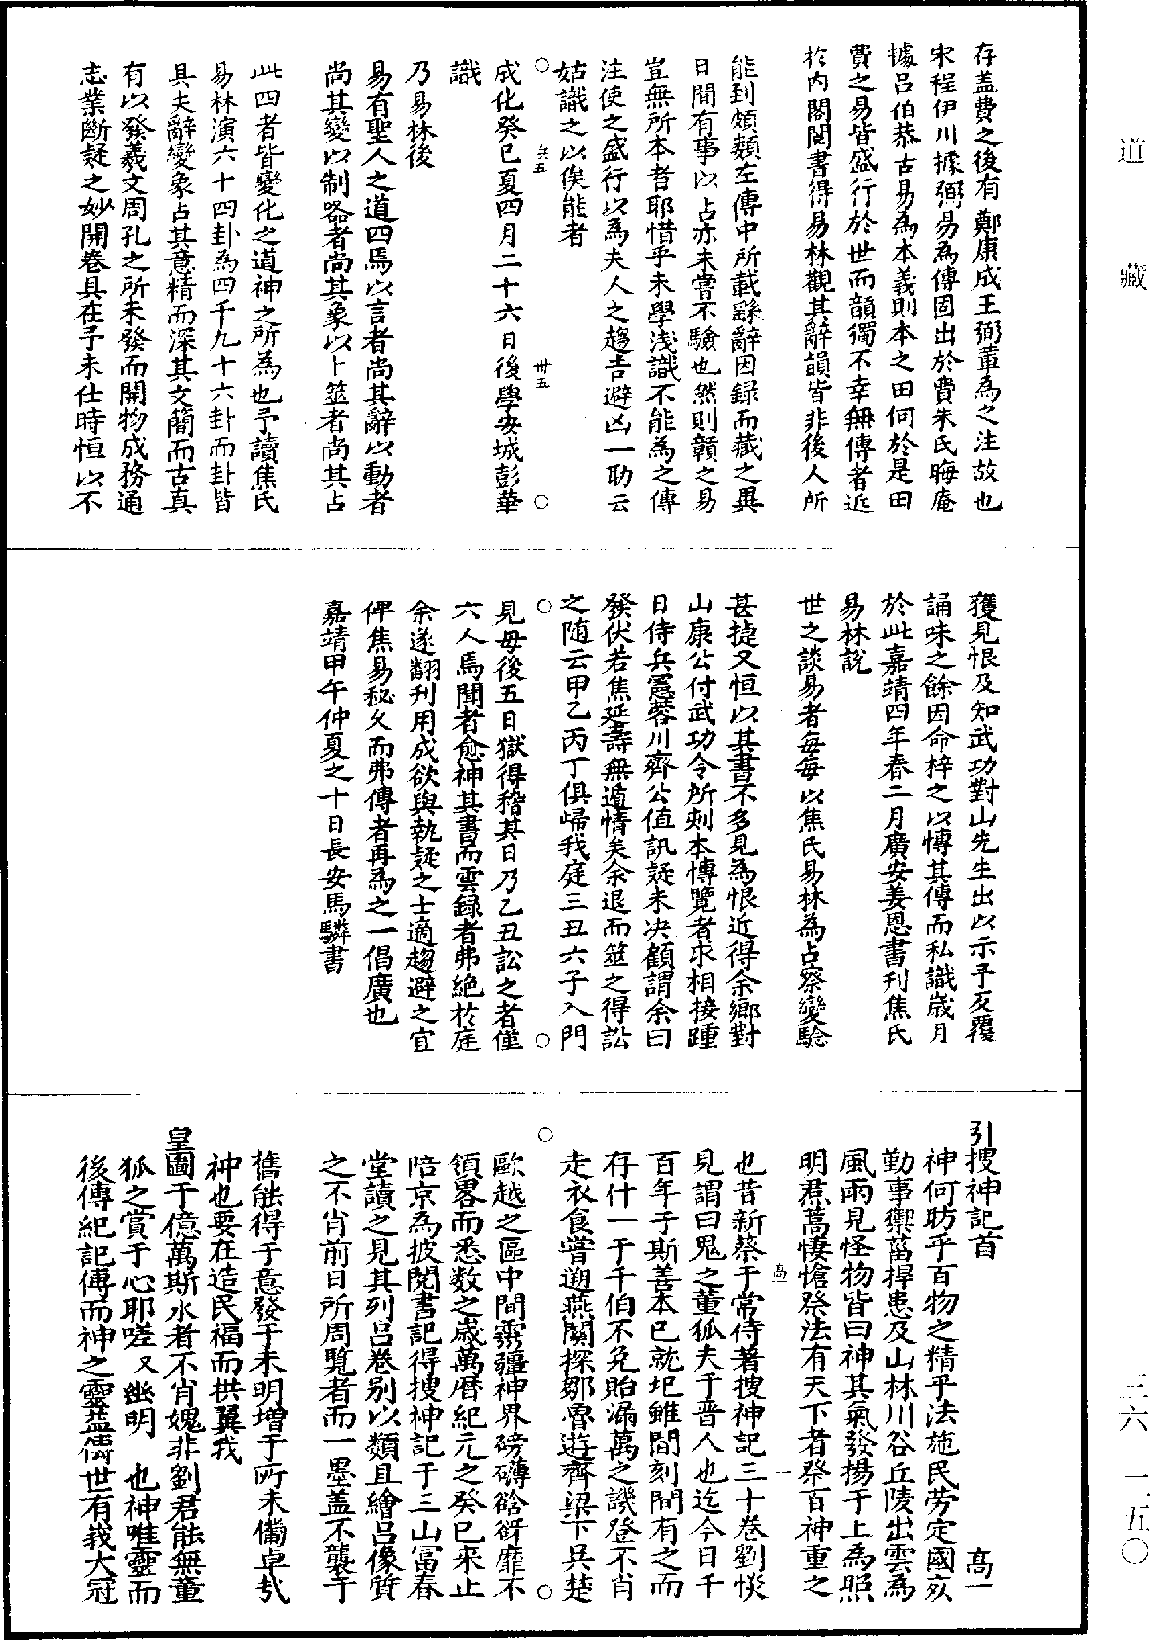 道藏
三六 一五〇
存蓋費之後有鄭康成王弼軰為之注故也
宋程伊川據弼易為傳固出於費朱氏晦庵
據吕伯恭古易為本義則本之田何於是田
費之易皆盛行於世而韻獨不幸無傳者近
於內閣閱書得易林觀其辭韻皆非後人所
能到頗類左傳中所載繇辭因録而藏之異
日閒有事以占亦未嘗不驗也然則贛之易
豈無所本者耶惜乎未學淺識不能為之傳
注使之盛行以為夫人之趨吉避凶一助云
姑識之以俟能者
成化癸巳夏四月二十六日後學安城彭華
識
乃易林後
易有聖人之道四焉以言者尚其辭以動者
尚其變以制器者尚其象以卜筮者尚其占
此四者皆變化之道神之所為也予讀焦氏
易林演六十四卦為四千九十六卦而卦皆
具夫辭變象占其意精而深其文簡而古真
有以發羲文周孔之所未發而開物成務通
志業斷疑之妙開卷具在予未仕時恒以不
獲見恨及知武功對山先生出以示予反覆
誦味之餘因命梓之以慱其傳而私識歲月
於此嘉靖四年春二月廣安姜恩書刊焦氏
易林說
世之談易者每每以焦氏易林為占察變騐
甚捷又恒以其書不多見為恨近得余鄉對
山康公付武功令所刻本慱覽者求相接踵
日侍兵憲蓉川齊公值訊疑未决顧謂余曰
發伏若焦延壽無遁情矣余退而筮之得訟
之随云甲乙丙丁俱歸我庭三丑六子入門
見毋後五日獄得稽其日乃乙丑訟之者僅
六人焉聞者愈神其書而雲録者弗絶扵庭
余遂翻刊用成欲與執疑之士適趨避之宜
俾焦易秘久而弗傳者再為之一倡廣也
嘉靖甲午仲夏之十日長安馬驎書
引搜神記首 高一
神何昉乎百物之精乎法施民勞定國以
勤事禦菑捍患及山林川谷丘陵出雲為
風雨見怪物皆曰神其氣發揚于上為昭
明焄蒿悽愴祭法有天下者祭百神重之
也昔新蔡于常侍著搜神記三十卷劉惔
見謂曰鬼之董狐夫于晉人也迄今日千
百年于斯善本已就圯雖間刻間有之而
存什一于千伯不免貽漏萬之譏登不肖
走衣食嘗遡燕關探鄒魯遊齊梁下吳楚
歐越之區中間靈疆神界磅礴谽谺靡不
領畧而悉数之歲萬曆紀元之癸巳來止
陪京為披閱書記得搜神記于三山富春
堂讀之見其列吕卷别以類且繪吕像質
之不肖前日所周覽者而一墨盖不襲于
舊能得于意發于未明增于所未備卓㢤
神也要在造民福而拱翼我
皇圖于億萬斯水者不肖媿非劉君能無董
狐之賞于心耶嗟又幽明 也神唯靈而
後傳紀記傳而神之靈益傳世有我大冠